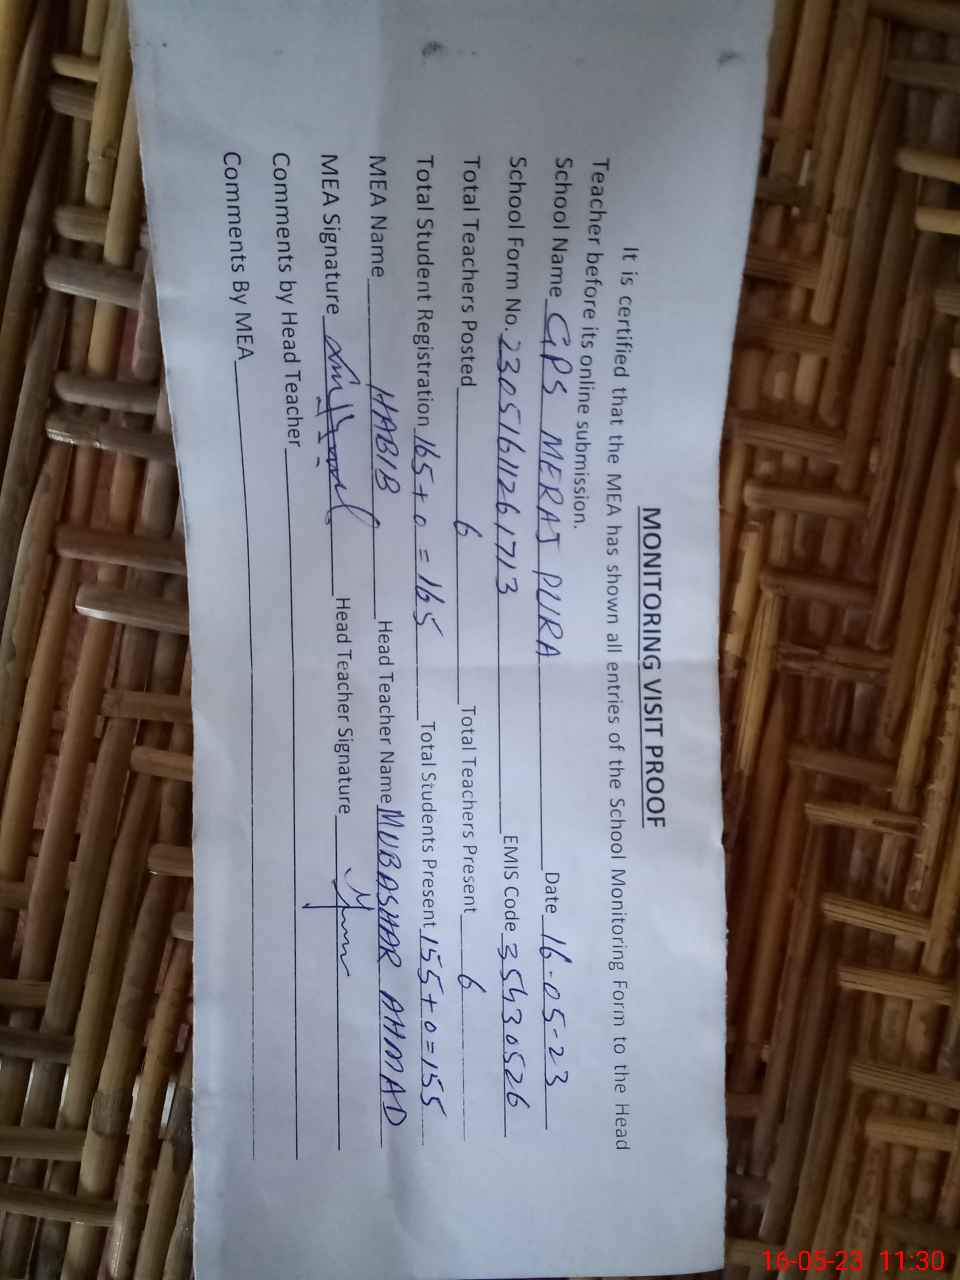 MONITORING VISIT PROOF
It is certified that the MEA has shown all entries of the School Monitoring Form to the Head
Teacher before its online submission.
School Name GPS MERAJ PURA Date 16-05-23
School Form No. 23051611261713 EMIS Code 35430526
Total Teachers Posted 6 Total Teachers Present 6
Total Student Registration 165+0=165 Total Students Present 155+0=155
MEA Name HABIB Head Teacher Name MUBASHAR AHMAD
MEA Signature Head Teacher Signature
Comments by Head Teacher
Comments By MEA
16-05-23 11:30